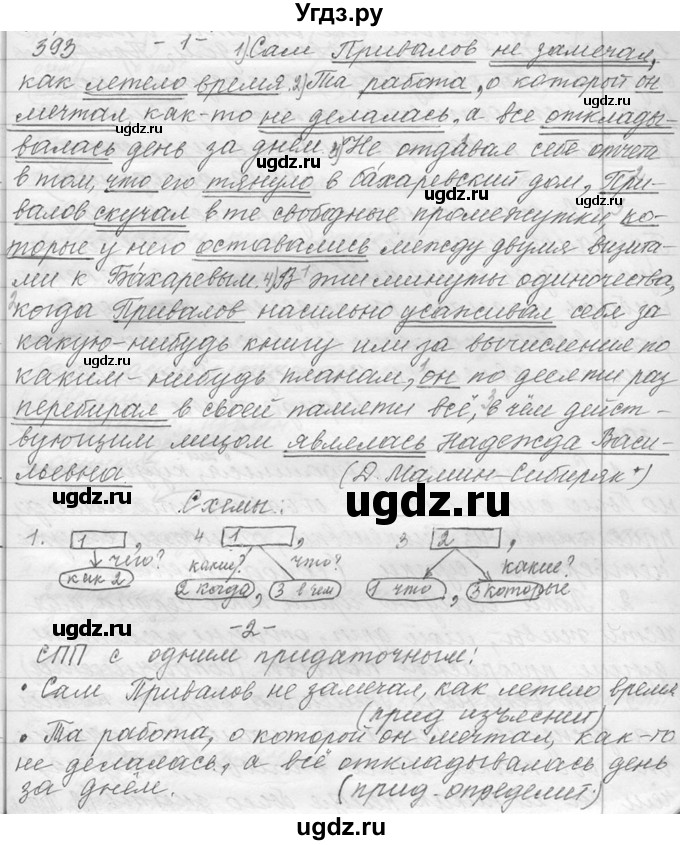 Угдз.ру
393 - 1 - 1) Сам Привалов не замечал,
как летело время. 2) Та работа, о который он
мечтал, как-то не делалась, а все отклады-
ugdz.ru ugdz.ru
валась день за днём. 3) Не отдавал себе отчета
ugdz.ru ugdz.ru
в том, что его тянуло в бахаревский дом, При-
валов скучал в те свободные промежутки, ко-
торые у него оставались между двумя визита-
ugdz.ru ugdz.ru
ми к Бахаревым. 4) В эти минуты одиночества,
когда Привалов насильно усаживал себя за
какую-нибудь книгу или за вычисление по
ugdz.ru ugdz.ru
каким-нибудь планам, он по десяти раз
перебирал в своей памяти всё, в чём дейст-
вующим лицом являлась Надежда Васи-
льевна (Д. Мамин-Сибиряк)
ugdz.ru
Схемы:
1. 1, 4. 1, 3 2,
чего? какие? что? какие?
как 2 2 когда, 3 в чем 1 что, 3 которые
ugdz.ru ugdz.ru
- 2 -
СПП с одним придаточным:
• Сам Привалов не замечал, как летело время
ugdz.ru (прид изъяснит)
• Та работа, о которой он мечтал, как-то
не делалась, а всё откладывалась день
ugdz.ru
за днём. (прид-определит.)
ugdz.ru ugdz.ru